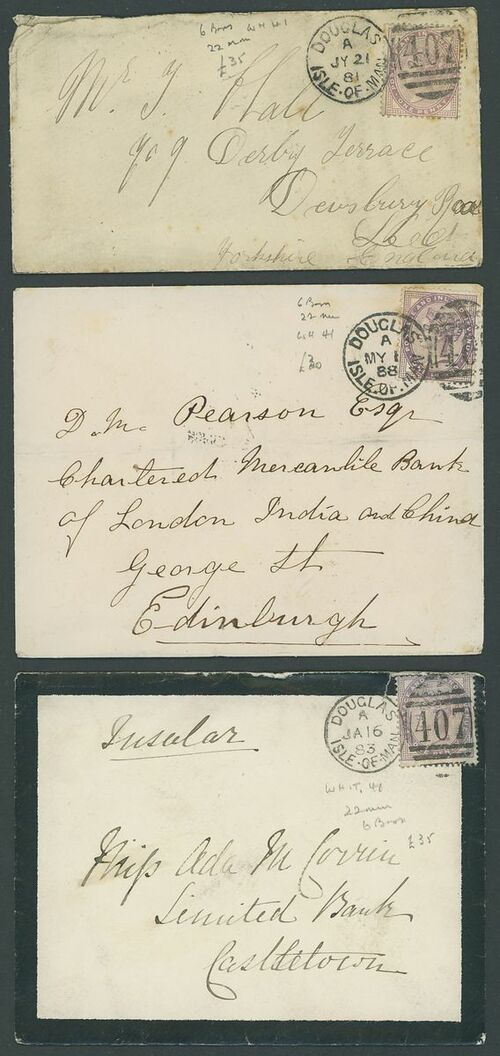 6 Bars WH 41
22 mm
£35
DOUGLAS
A
JY 21
81
ISLE-OF-MAN
407
ONE PENNY
Mr J Hall
Derby Terrace
Dewsbury Road
Leeds
Yorkshire England
6 Bars
22 mm
WH 41
DOUGLAS
A
MY 1
88
ISLE-OF-MAN
D. Mc Pearson Esqr
Chartered Mercantile Bank
of London India and China
George St
Edinburgh
DOUGLAS
A
JA 16
83
ISLE-OF-MAN
407
Insular
WHIT. 41
22 mm
6 Bars
£35
Miss Ada M Corrin
Limited Bank
Castletown